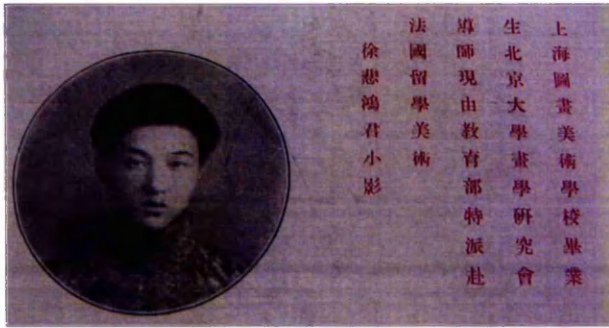 上海圖畫美術學校畢業
生北京大學畫學研究會
導師現由教育部特派赴
法國留學美術
徐悲鴻君小影